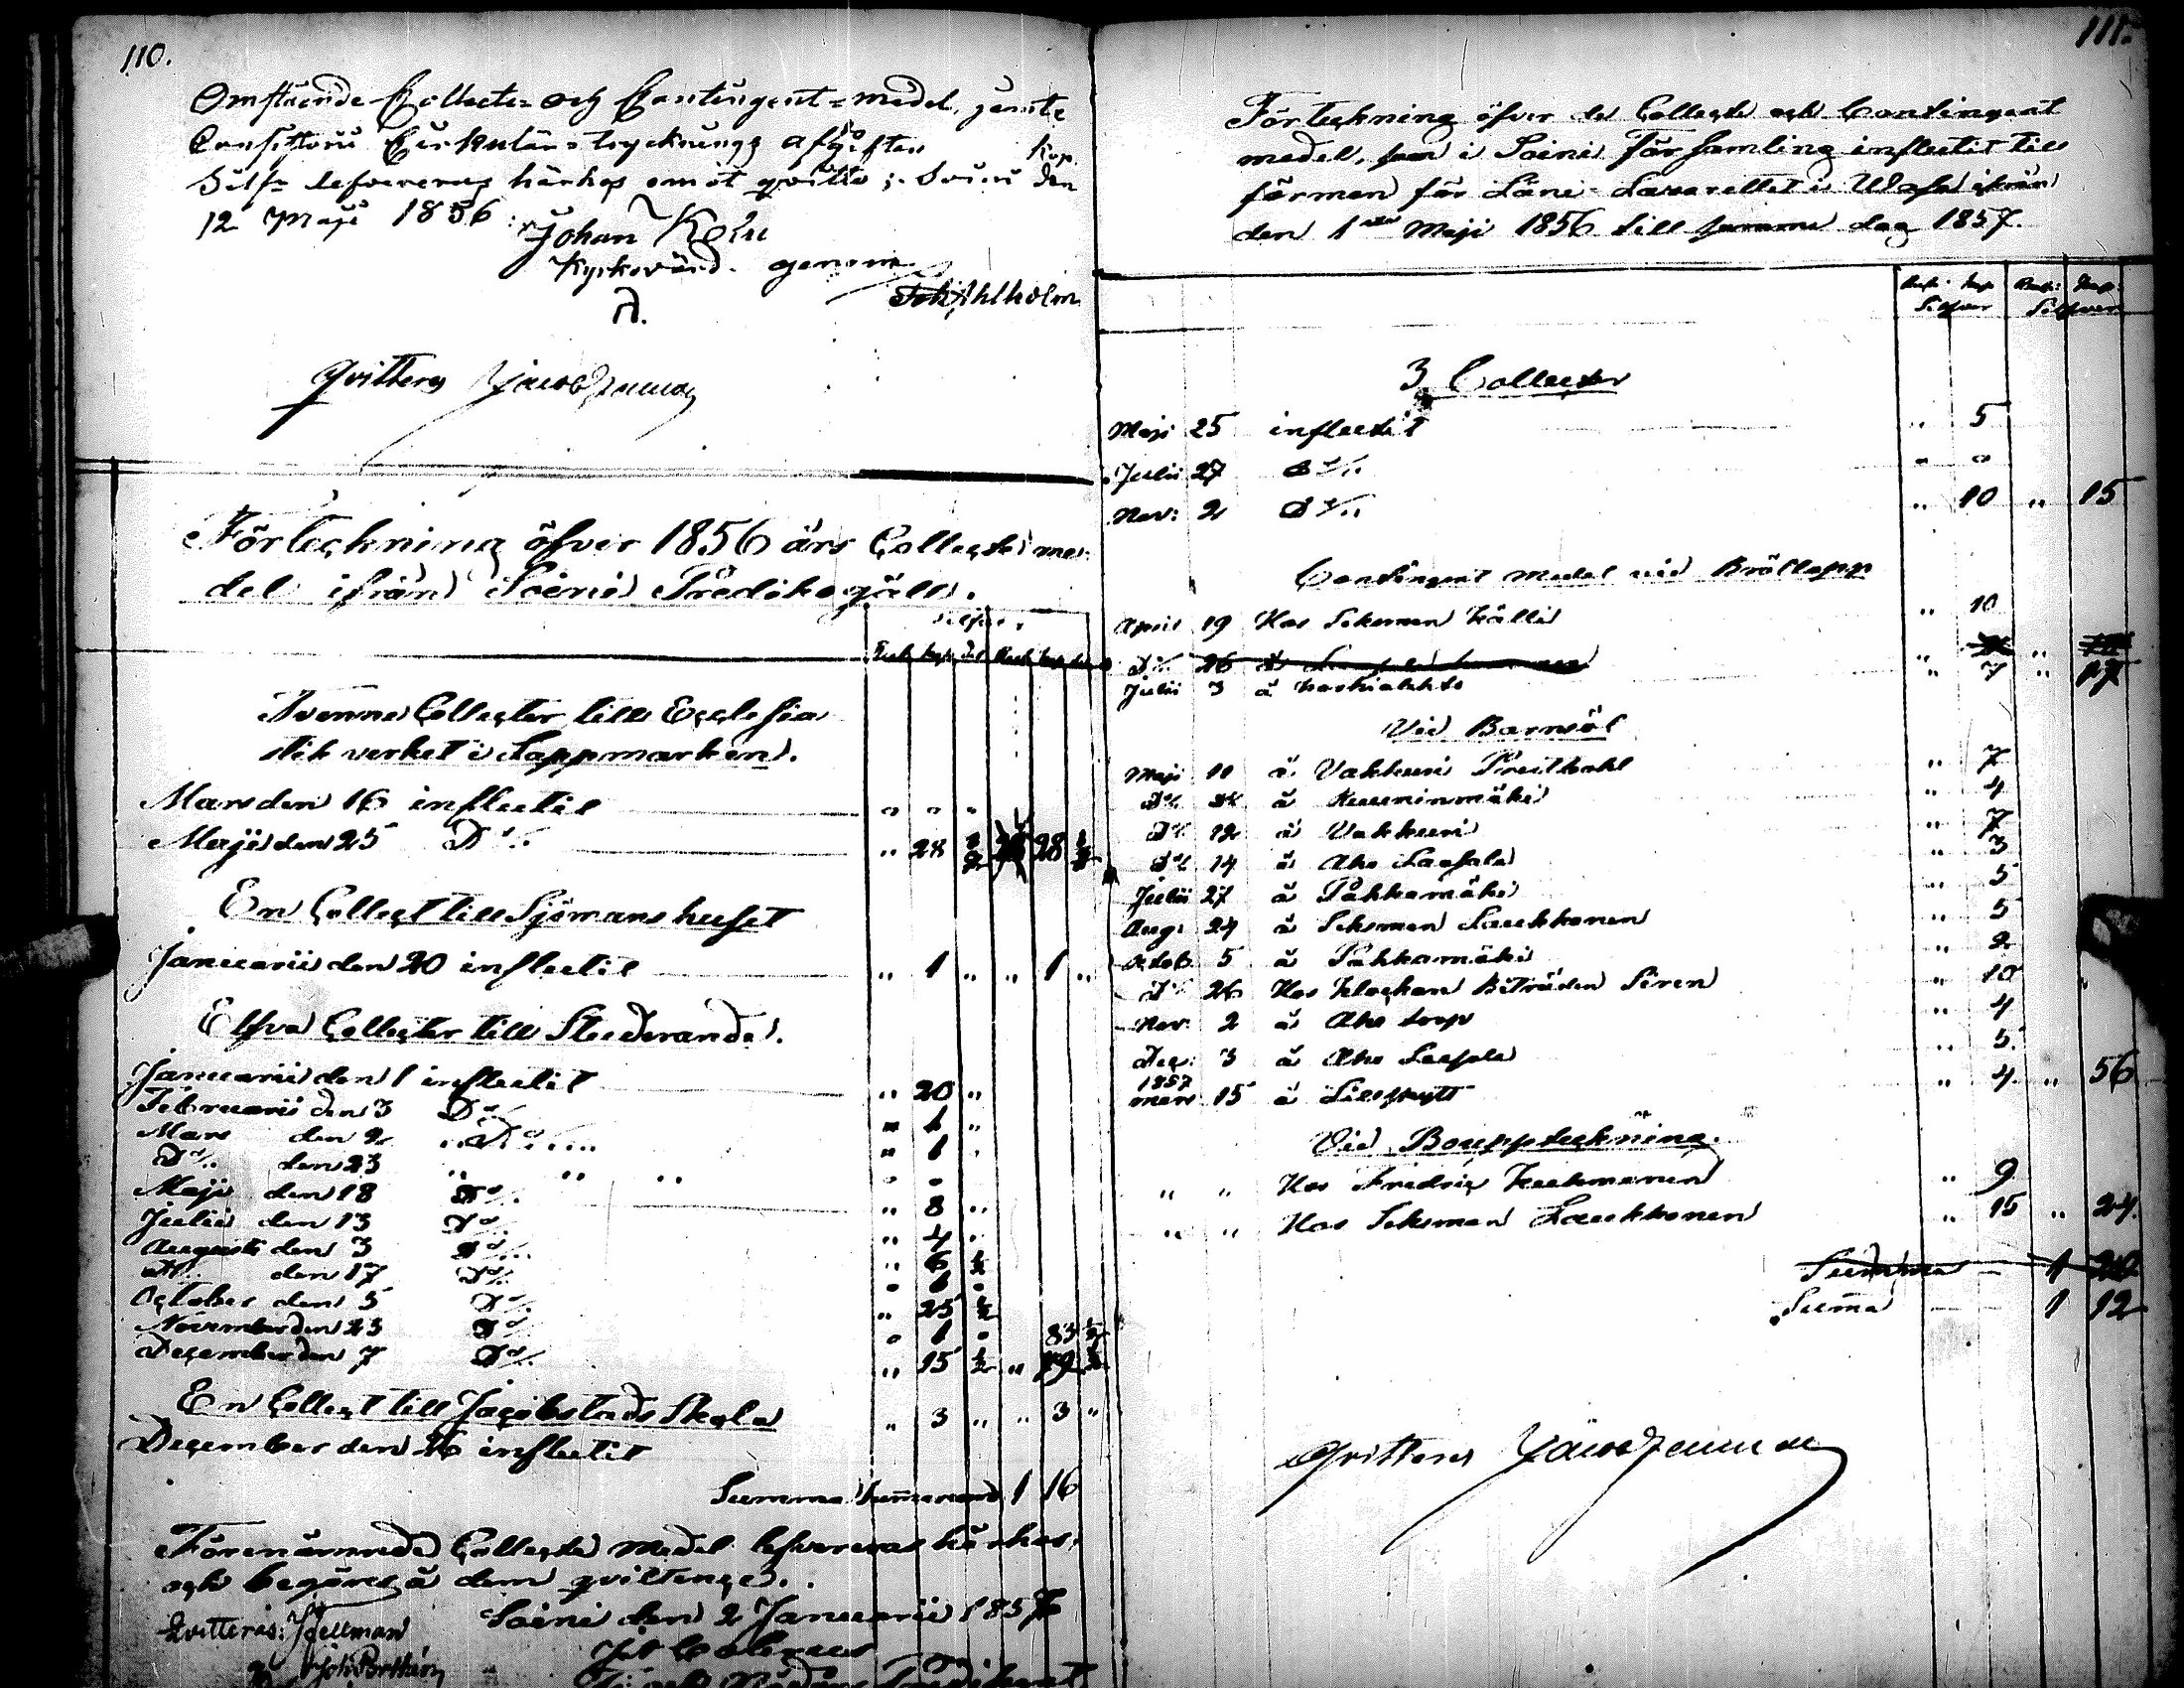 110.
Omstående Collecte- och Contingent-medel, jemte
Consistorii Cirkulär-trycknings afgiften Kop.
Silfr lefvereras härhos emot qvitto; Soini den
12 Maji 1856:
Johan
Kyrkovärd. genom
Joh. Ahlholm
Qvitteras
Förteckning öfver 1856 års Collecte me-
del ifrån Soini Predikogäll.
Silfver
Rub. Kop. Rub. Kop.
Tvenne Collecter till Ecclesia
stik verket i Lappmarken.
Mars den 16 influtit " " "
Maji den 25 Do/. " 28 1/2 28 1/2
En Collect till Sjömanshuset
Januarii den 20 influtit " 1 " " 1 "
Elfva Collecter till Studerande.
Januarii den 1 influtit " 20 "
Februarii den 3 Do/. " 1 "
Mars den 2 Do/. " 1 "
Do/. den 23 " " " " "
Maji den 18 Do/. " 8 "
Julii den 13 Do/. " 4 "
Augusti den 3 Do/. " 6 1/2
den 17 Do/. " 1 "
October den 5 Do/. " 25 1/2
November den 23 Do/. " 1 " 83 1/2
December den 7 Do/. " 15 1/2 "
En Collect till Jacobstads Skola " 3 " " 3 "
December den 26 influtit
Summa Summarum 1 16
Förenämnde Collecte medel lefvereras härhos,
och begäres å dem qvittence.
Soini den 2 Januarii 1857
Qvitteras: Hellman
111.
Förteckning öfver de Collecte och Contingent
medel, som i Soini Församling influtit till
förmon för Läns-Lazarettet i Wasa ifrån
den 1sta Maji 1856 till samma dag 1857.
Rub: Kop Rub: Kop.
Silfver Silfver
3 Collecter
Maji 25 influtit " 5
Julii 27 Do/. " "
Nov: 2 Do/. " 10 " 15
Contingent medel vid Bröllopp
April 19 Hos Sexman Källi " 10
Do/. 26
Julii 3 å " 7 " 17
Vid Barnsöl
Maji 11 å Vakkuri " 7
Do/. å Kuuminmäki " 4
Do/. 12 å Vakkuri " 7
Do/. 14 å Aho Laasala " 3
Julii 27 å Pahkamäki " 5
Aug: 24 å Sexman Laukkonen " 5
Octob. 5 å Pahkamäki " 2
Do/. 26 Hos Klockan Biträden Siren " 10
Nov: 2 å Aho torp " 4
Dec: 3 å Aho Laasala " 5
1857
Mars 15 å " 4 " 56
Vid Bouppteckning.
" " Hos Fredric " 9
" " Hos Sexman Laukkonen " 15 " 24.
Summa 1
Summa 1 12
Qvitteras